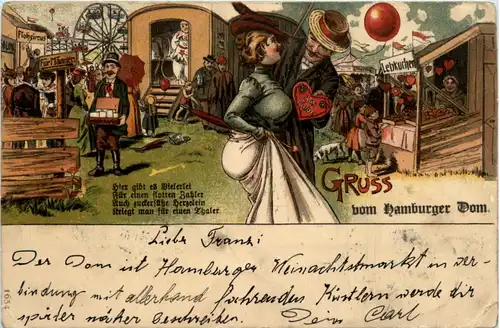 Flohzircus
Fünf Thaler
Lebkuchen
Hier gibt es Vielerlei
Für einen flotten Zahler
Auch zuckersüße Herzelein
Kriegt man für einen Thaler
GRUSS
vom Hamburger Dom.
Liebe Franzi
Der Dom ist Hamburger Weinachtsmarkt in ver-
bindung mit allerhand fahrenden Künstlern werde dir
später näher beschreiben. Dein Carl